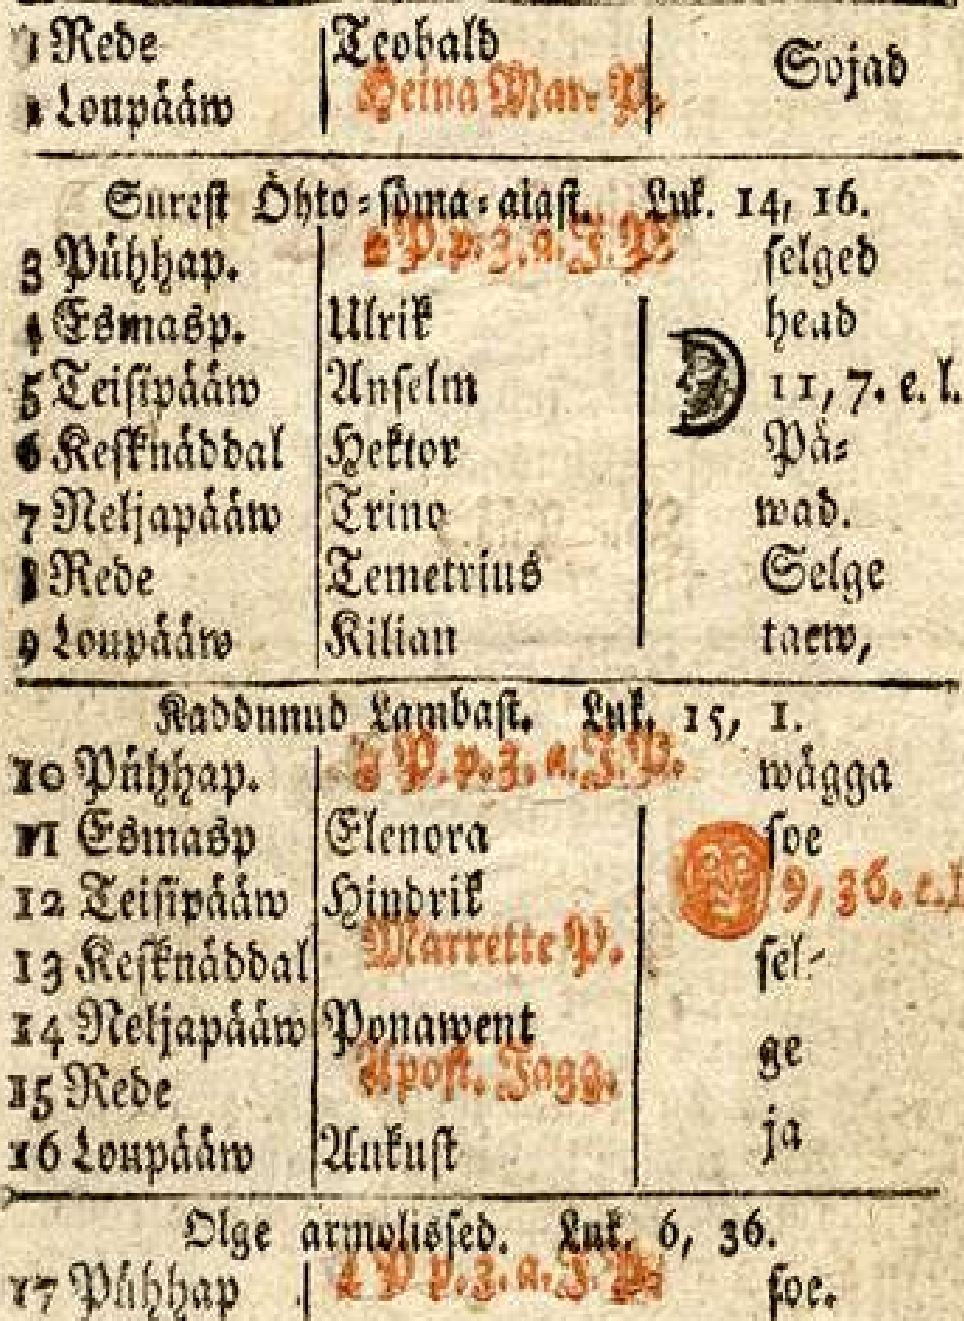 1 Rede Teobald Sojad
2 Loupääw Heina Mar. P.
Surest Öhto-söma-aiast. Luk. 14, 16.
3 Pühhap. 2 P. p. 3. a. J. P. selged
4 Esmasp. Ulrik head
5 Teisipääw Anselm 11, 7. e. l.
6 Kesknäddal Hektor Pä-
7 Neljapääw Trino wad.
8 Rede Temetrius Selge
9 Loupääw Kilian taew,
Kaddunud Lambast. Luk. 15, 1.
10 Pühhap. 3 P. p. 3. a. J. P. wägga
11 Esmasp Elenora soe
12 Teisipääw Hindrik 9, 36. e. l
13 Kesknäddal Marrette P. sel-
14 Neljapääw Ponawent ge
15 Rede Apost. Jagg.
16 Loupääw Aukust ja
Olge armolissed. Luk. 6, 36.
17 Pühhap 4 P p. 3. a. J. P. soe.